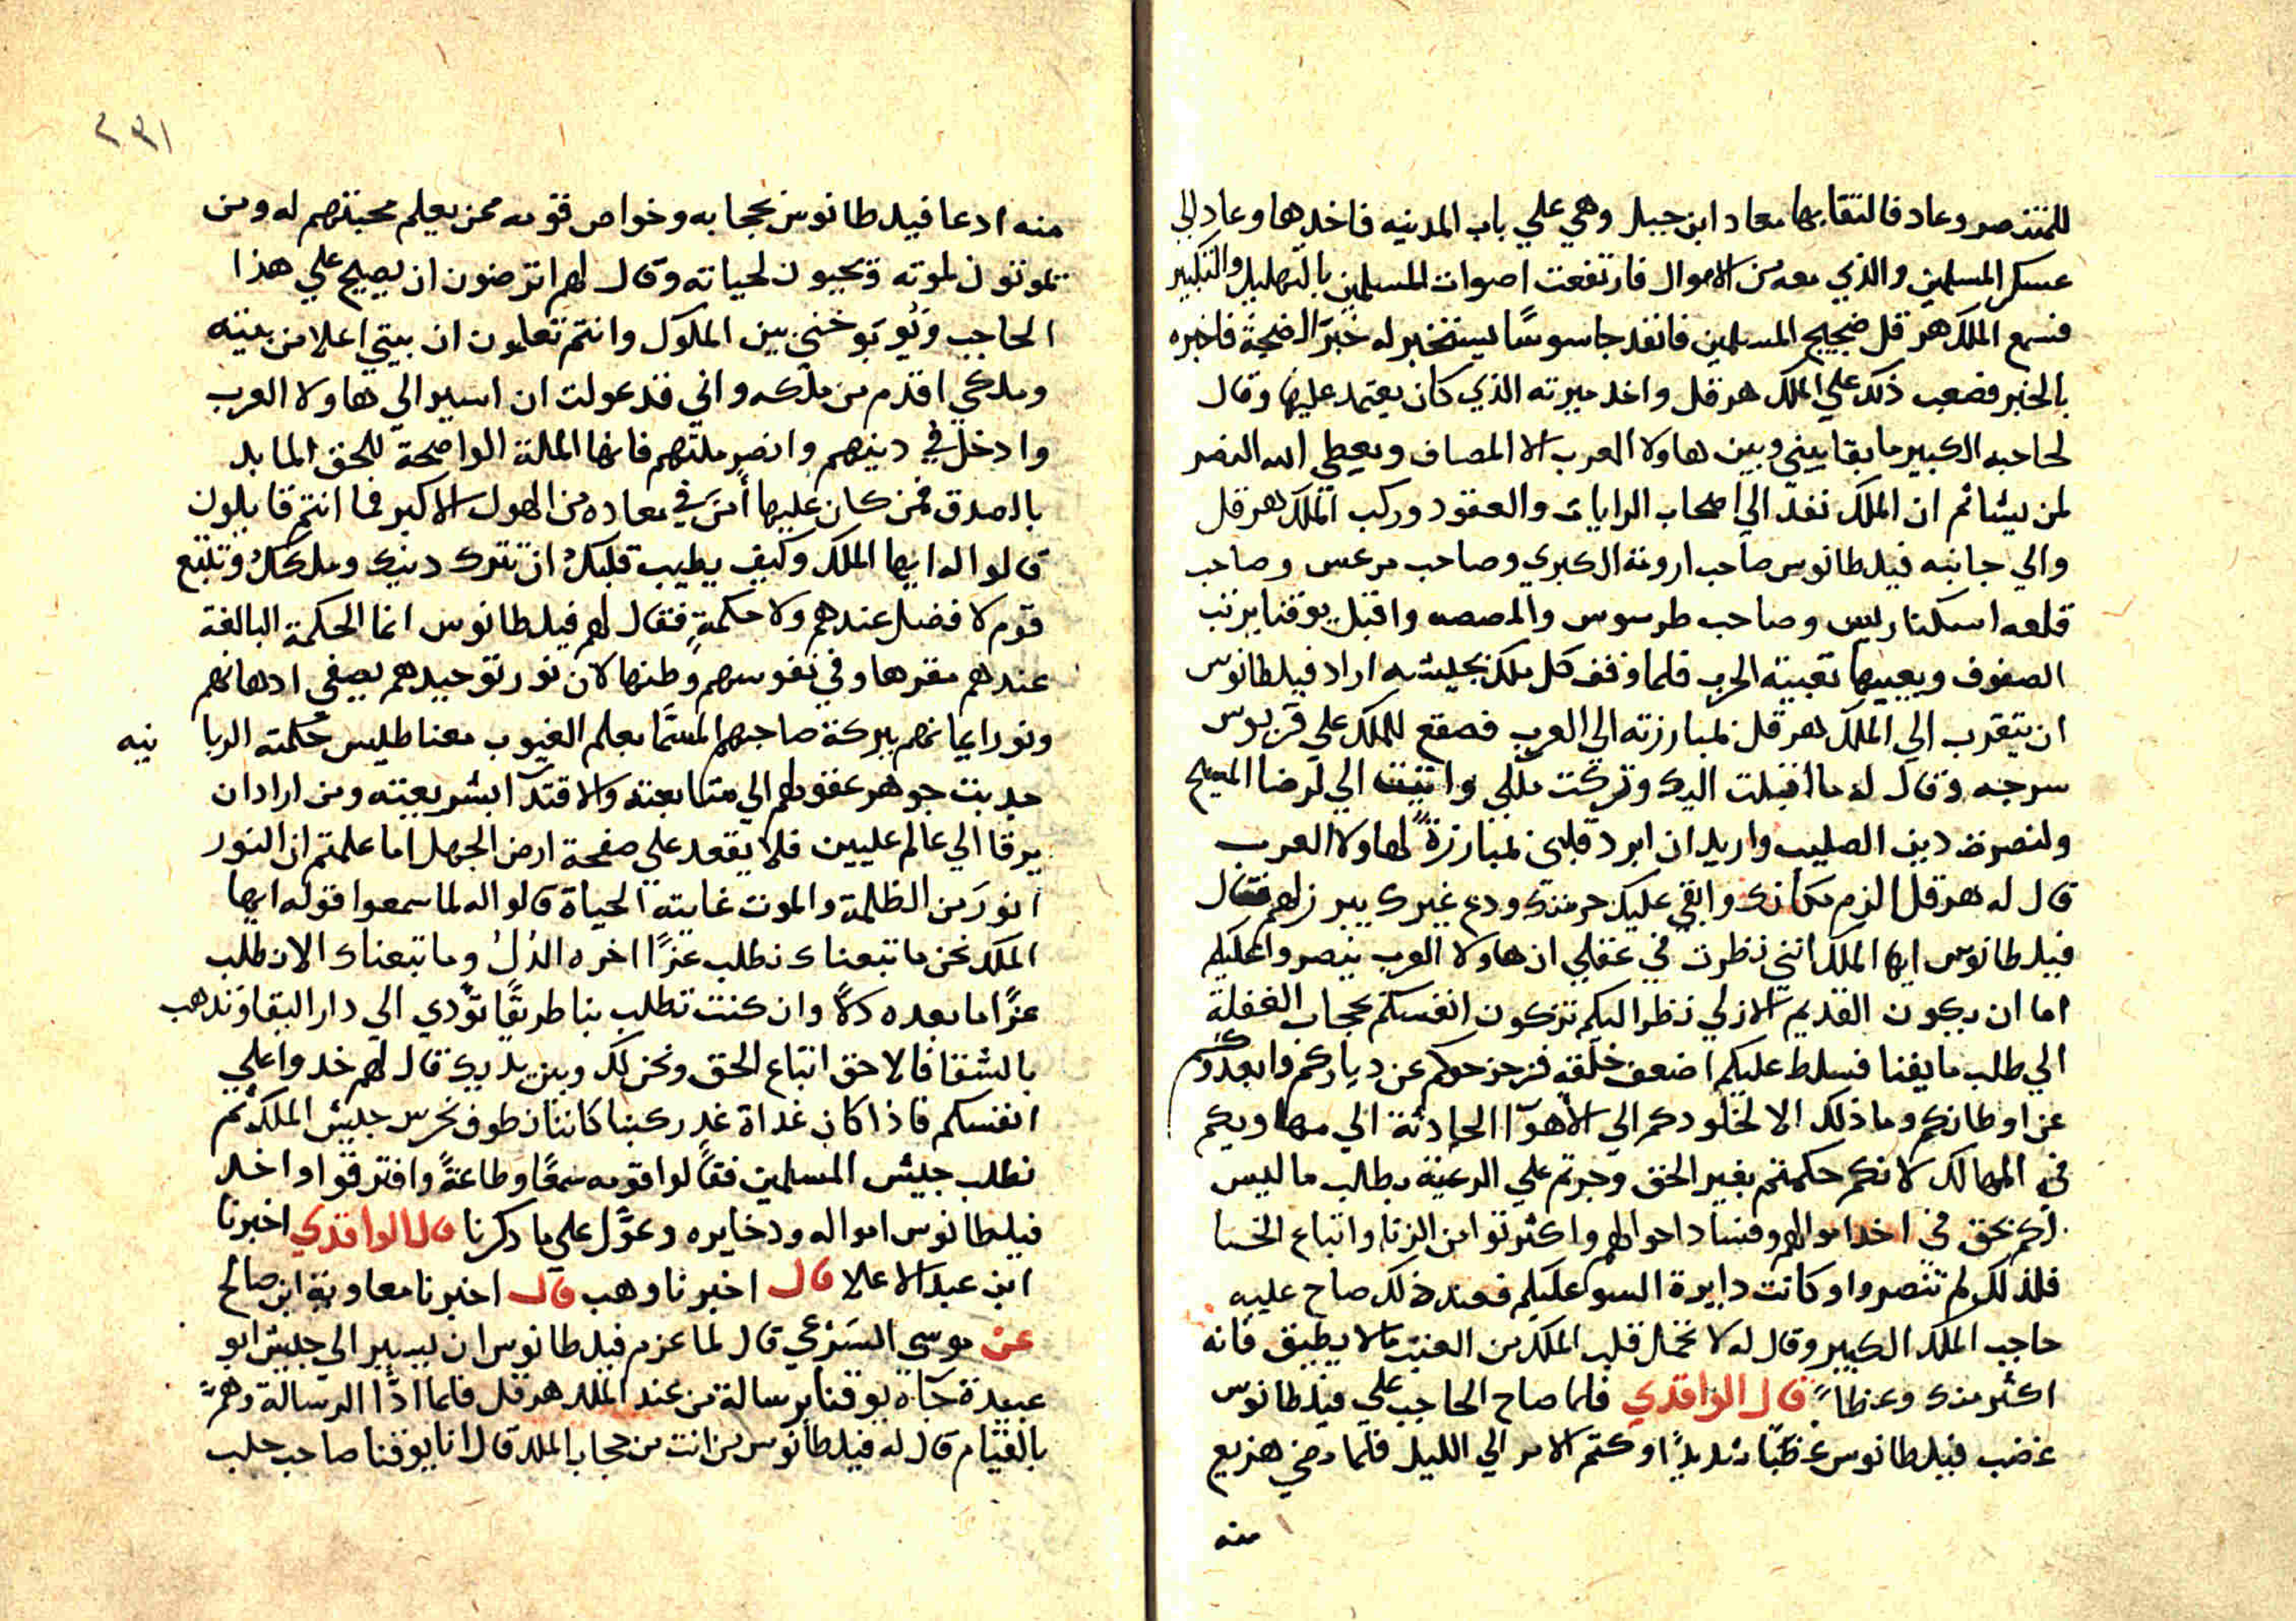 للمتنصر وعاد فالتقا بها معاد ابن جبل وهي علي باب المدينه فاخدها وعاد الي
عسكر المسلمين والذي معه من الاموال فارتفعت اصوات المسلمين بالتهليل والتكبير
فسمع الملك هرقل ضجيج المسلمين فانفد جاسوسًا يستخبر له خبر الضجة فاخبره
بالخبر فصعب ذلك علي الملك هرقل واخد ميرته الذي كان يعتمد عليها وقال
لحاجبه الكبير ما بقا بيني وبين هاولا العرب الا المصاف ويعطي الله النصر
لمن يشا ثم ان الملك نفد الي اصحاب الرايات والعقود وركب الملك هرقل
والي جانبه فيلطانوس صاحب ارومة الكبري وصاحب مرعس وصاحب
قلعه اسكندريس وصاحب طرسوس والمصصه واقبل يوقنا يرتب
الصفوف ويعبيها تعبية الحرب فلما وقف كل ملك بجيشه اراد فيلطانوس
ان يتقرب الي الملك هرقل لمبارزته الي العرب فصقع للملك علي قربوس
سرجه وقال له ما اقبلت اليك وتركت مللي واتيت الي لرضا المسيح
ولنصرة دين الصليب واريد ان ابرد قلبي بمبارزة لهاولا العرب
قال له هرقل الزم مكانك وابقي عليك حرمتك ودع غيرك يبرز لهم فقال
فيلطانوس ايها الملك انني نظرت في عقلي ان هاولا العرب ينصروا عليكم
اما ان يكون القديم الازلي نظر اليكم تزكون انفسكم بحجاب الغفلة
الي طلب ما يفنا فسلط عليكم اضعف خلقه فزحزحوكم عن دياركم وابعدوكم
عن اوطانكم وما ذلك الا لخلودكم الي الأهوآ الحادثة الي مهاويكم
في المهالك لانكم حكمتم بغير الحق وجرتم علي الرعية بطالب ما ليس
لكم بحق في اخد اموالهم وفساد احوالهم واكثرتوا من الزنا واتباع الخنا
فلذلك لم تنصروا وكانت دايرة السو عليكم فعند ذلك صاح عليه
حاجب الملك الكبير وقال له لا تحمل قلب الملك من العتب ما لا يطيق فانه
اكثر منك وعظاً قال الواقدي فلما صاح الحاجب علي فيلطانوس
غضب فيلطانوس غضبًا شديدًا وكتم الامر الي الليل فلما مضي هزيع
منه
٢٣١
منه ادعا فيلطانوس بحجابه وخواص قومه ممن يعلم محبتهم له ومن
يموتون لموته ويحيون لحياته وقال لهم اترضون ان يصيح علي هذا
الحاجب ويوبخني بين الملوك وانتم تعلمون ان بيتي اعلا من بيته
وملكي اقدم من ملكه واني قد عولت ان اسير الي هاولا العرب
وادخل في دينهم وانصر ملتهم فانها الملة الواضحة للحق المايد
بالصدق فمن كان عليها أمن في معاده من الهول الاكبر فما انتم قايلون
قالوا له ايها الملك وكيف يطيب قلبك ان تترك دينك وملكك وتتبع
قوم لا فضل عندهم ولا حكمةٍ فقال لهم فيلطانوس انما الحكمة البالغة
عندهم مقرها وفي نفوسهم وطنها لان نور توحيدهم يصفي ادهانهم
ونور ايمانهم ببركة صاحبهم المسمَّا بعلم الغيوب مغناطيس حكمته الربا نيه
جدبت جوهر عقولهم الي متابعته والاقتدآ بشريعته ومن اراد ان
يرقا الي عالم عليين فلا يقعد علي صفحة ارض الجهل اما علمتم ان النور
انورَ من الظلمة والموت غايته الحياة قالوا له لما سمعوا قوله ايها
الملك نحن ما تبعناك نطلب عزًا اخره الذلُ وما تبعناك الا نطلب
عزًا ما بعده ذلاً وان كنت تطلب بنا طريقًا تؤدي الي دار البقا وتدهب
بالشقا فالاحق اتباع الحق ونحن لك وبين يديك قال لهم خدوا علي
انفسكم فاذا كان غداة غدٍ ركبنا كاننا نطوف نحرس جيش الملك ثم
نطلب جيش المسلمين فقالوا قومه سمعًا وطاعةً وافترقوا واخد
فيلطانوس امواله ودخايره وعوَّل علي ما دكرنا قال الواقدي اخبرنا
ابن عبد الاعلا قال اخبرنا وهب قال اخبرنا معاوية ابن صالح
عن موسي السترعي قال لما عزم فيلطانوس ان يسير الي جيش ابو
عبيدة جآه يوقنا برسالة من عند الملك هرقل فلما ادَّا الرسالة وهمَّ
بالقيام قال له فيلطانوس من انت من حجاب الملك قال انا يوقنا صاحب حلب